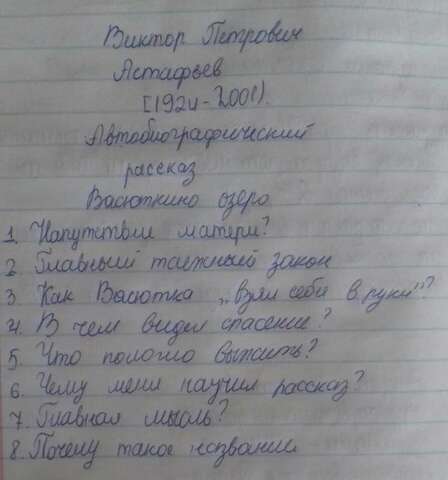 Виктор Петрович
Астафьев
[1924-2001).
Автобиографический
рассказ
Васюткино озеро
1. Напутствии матери?
2. Главный таежный закон
3. Как Васютка „взял себя в руки"?
4. В чем видел спасение?
5. Что помогло выжить?
6. Чему меня научил рассказ?
7. Главная мысль?
8. Почему такое название